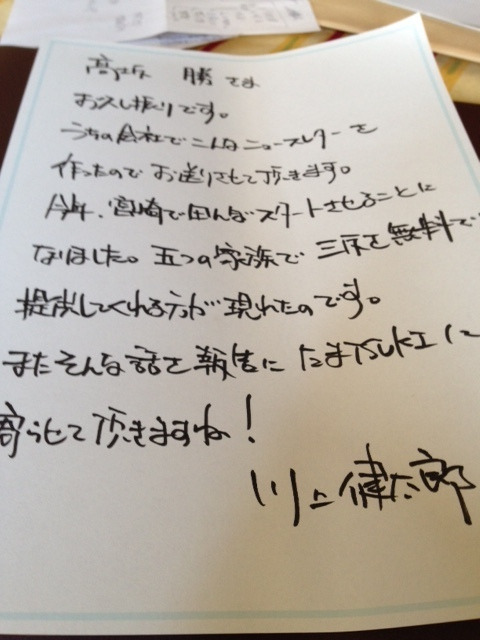 高坂 勝さま
お久し振りです。
うちの会社でこんなニュースレターを
作ったのでお送りさせて頂きます。
今年、宮崎で田んぼスタートさせることに
なりました。五つの家族で三反を無料で
提供してくれる方が現れたのです。
またそんな話を報告にたまTSUKIに
寄らせて頂きますね!
川上健太郎